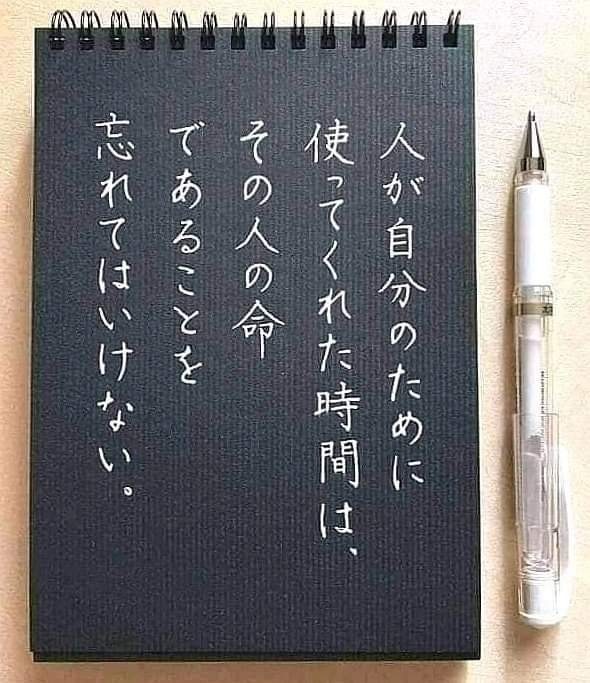 人が自分のために
使ってくれた時間は、
その人の命
であることを
忘れてはいけない。